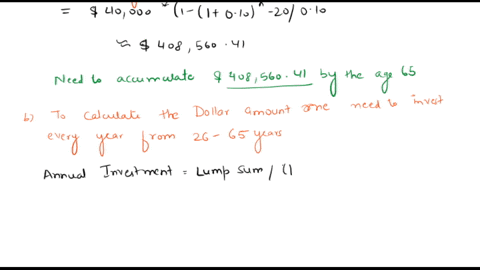 = $ 40,000 * (1-(1+0.10)^ -20/0.10
≈ $ 408,560.41
Need to accumulate $ 408,560.41 by the age 65
b) To calculate the Dollar amount one need to invest
every year from 26-65 years
Annual Investment = Lump sum / (1